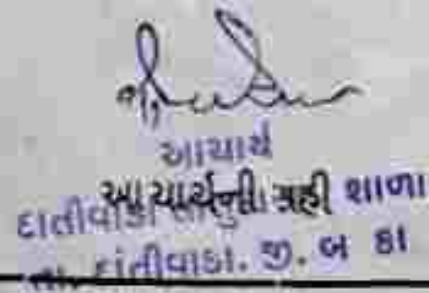 આચાર્ય
આચાર્યની સહી શાળા
દાંતીવાડા
તા. દાંતીવાડા. જી. બ કાં